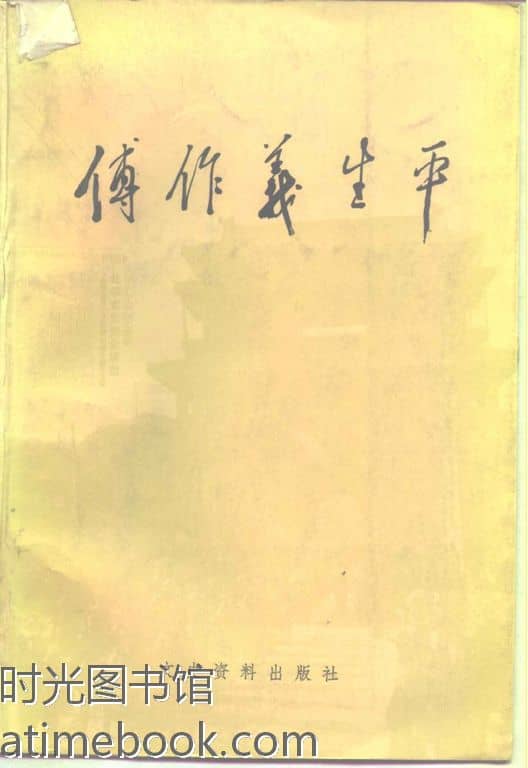 傅作義生平
文史资料出版社
时光图书馆
atimebook.com